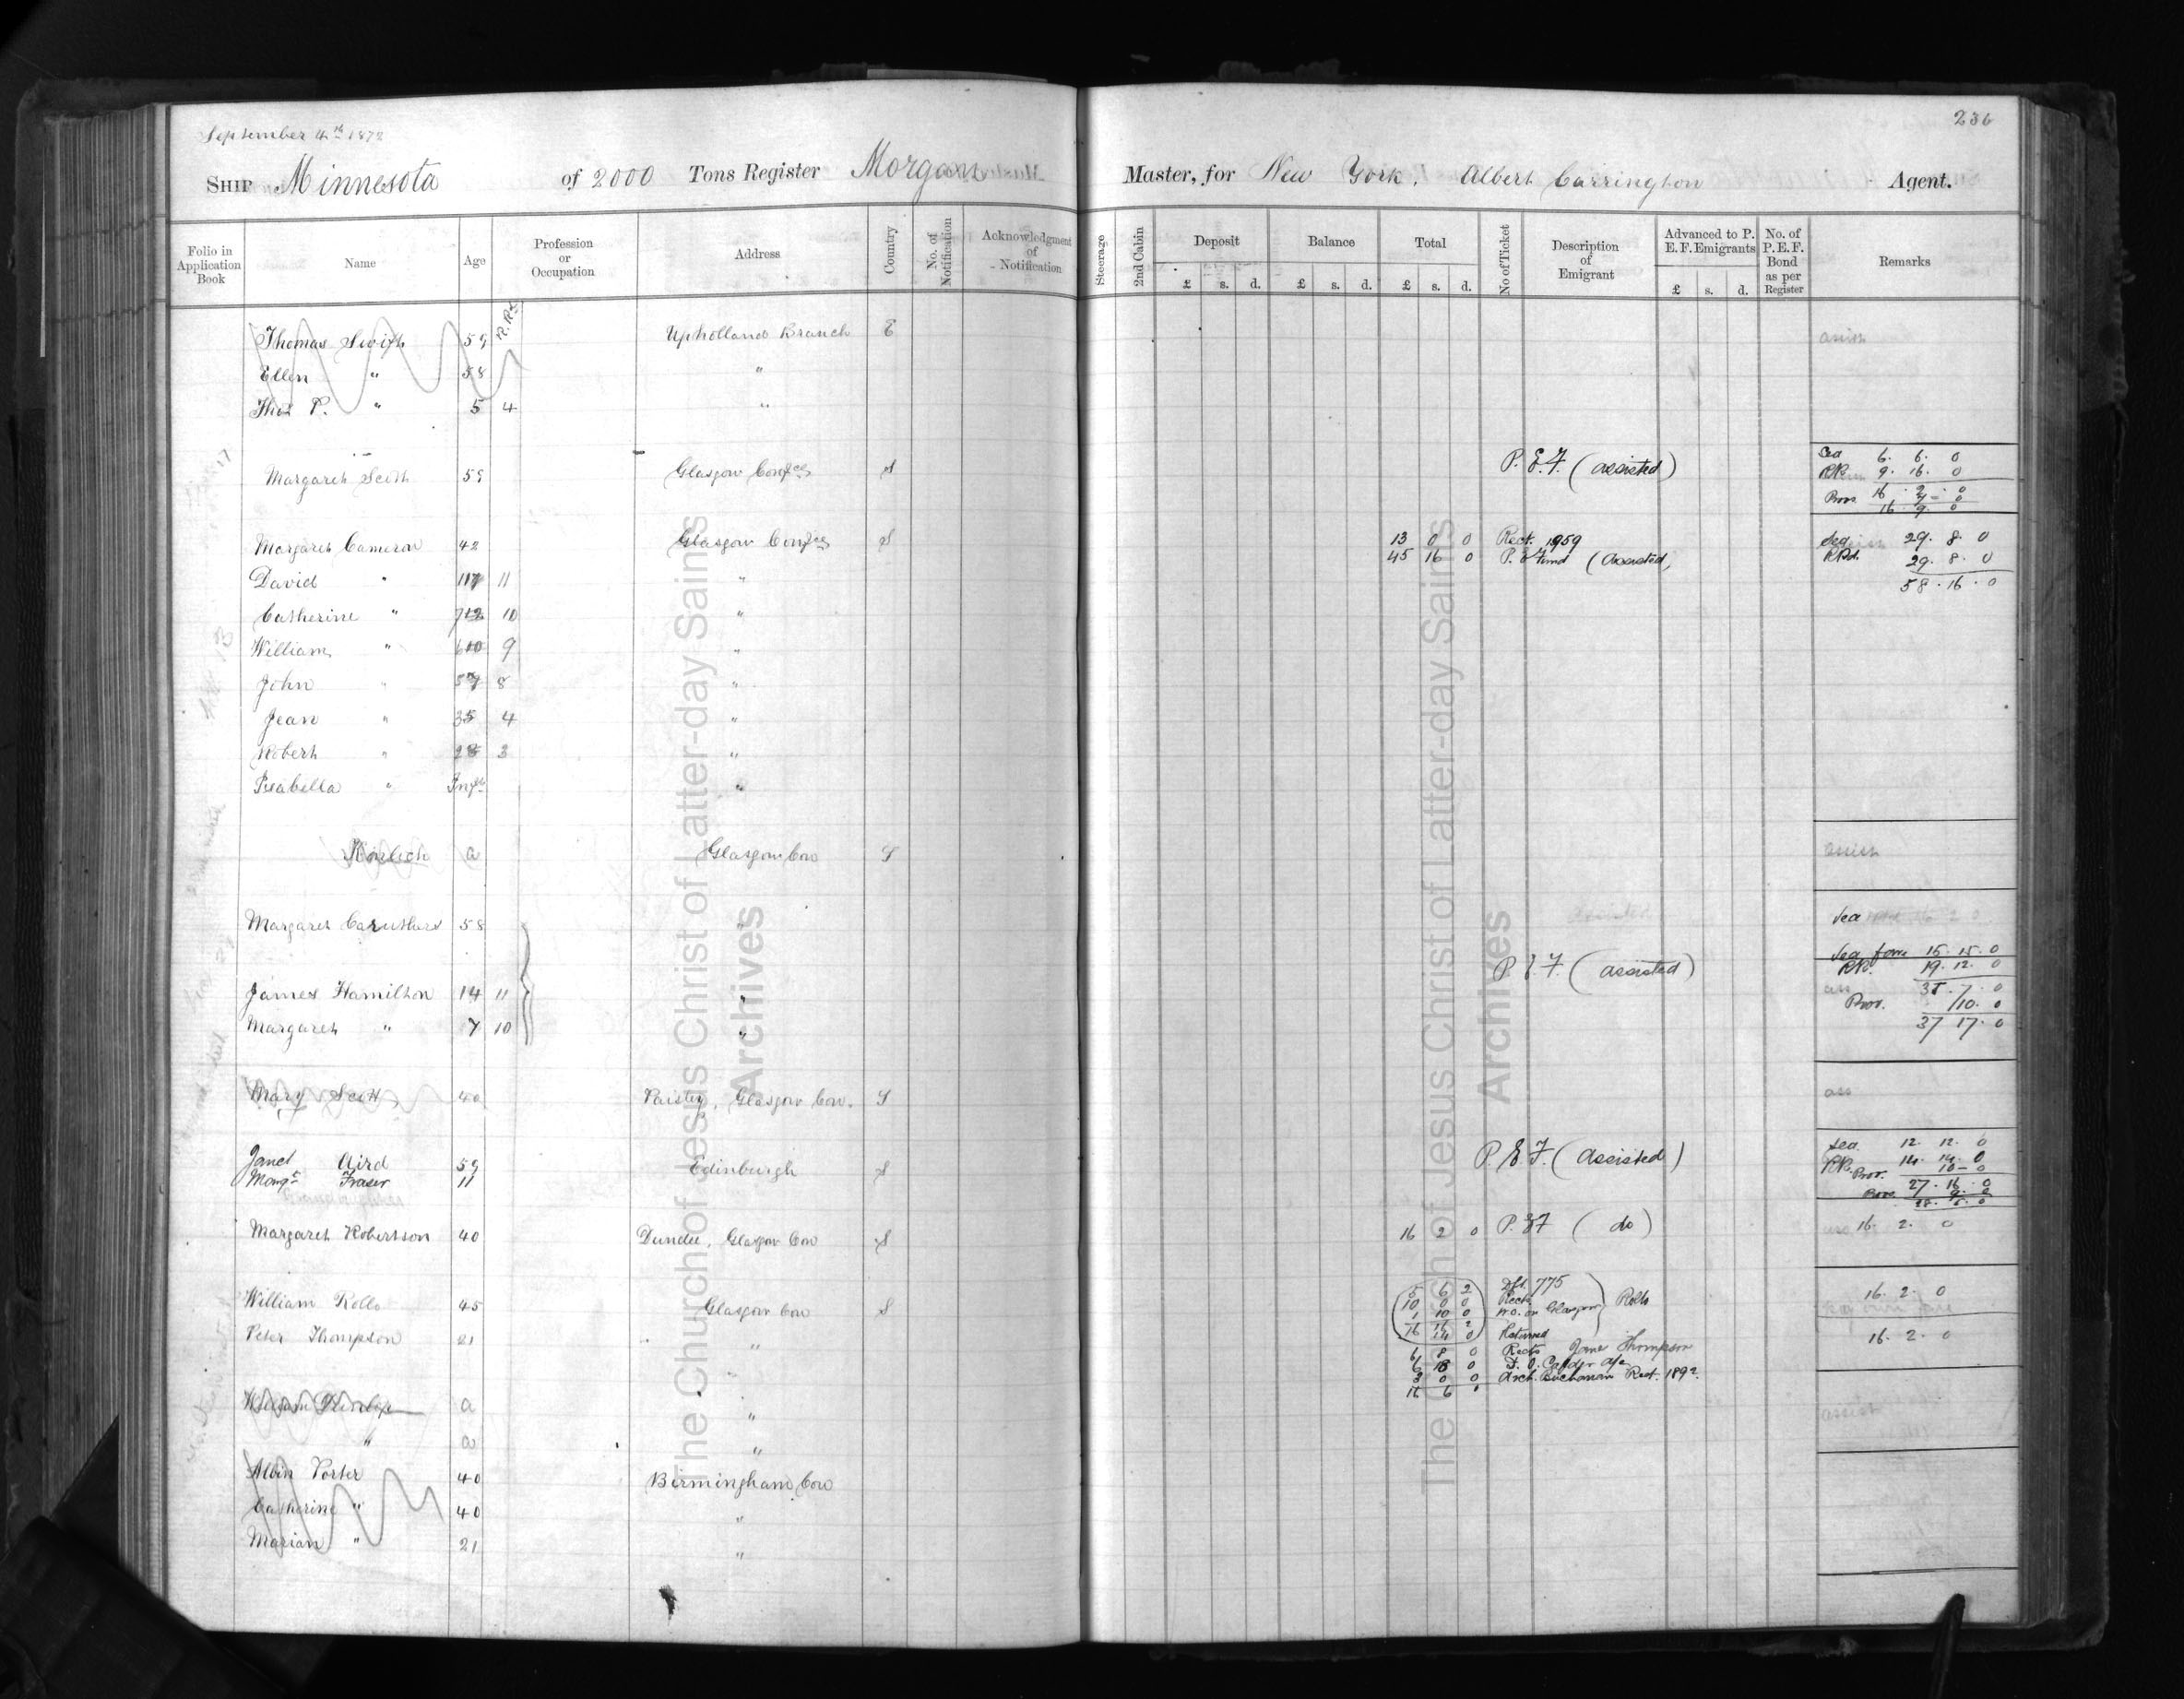 September 4th 1872
236
SHIP Minnesota of 2000 Tons Register Morgan Master, for New York. Albert Carrington Agent.
Folio in Application Book
Name
Age
Profession or Occupation
Address
Country
No. of Notification
Acknowledgment of Notification
Steerage
2nd Cabin
Deposit £ s. d.
Balance £ s. d.
Total £ s. d.
No of Ticket
Description of Emigrant
Advanced to P. E. F. Emigrants £ s. d.
No. of P.E.F. Bond as per Register
Remarks
Thomas Swift 59 Upholland Branch E
Ellen " 58 "
Thos P. " 5 4 "
Margaret Scott 59 Glasgow Confce S P. E. F. (assisted) Sea 6. 6. 0
RR. 9. 16. 0
Prov. 16. 2. 0
16. 9. 0
Margaret Cameron 42 Glasgow Confce S 13 0 0 Rect. 1959 Sea 29. 8. 0
45 16 0 P. E Fund (Assisted, RRd. 29. 8. 0
David " 11 " 58. 16. 0
Catherine " 10 "
William " 9 "
John " 8 "
Jean " 4 "
Robert " 3 "
Isabella " Inft "
a Glasgow Con S assist
Margaret Caruthers 58 " Sea
P E F. (assisted) Sea fare 15. 15. 0
RR. 19. 12. 0
James Hamilton 14 11 " 35. 7. 0
Prov. /10. 0
Margaret " 7 10 " 37 17. 0
Mary Scott 40 Paisley, Glasgow Con. S ass
Janet Aird 59 Edinburgh S P. E. F. (Assisted) Sea 12. 12. 0
Margt Fraser 11 RR. 14. 14. 0
Prov. 10 - 0
27. 16. 0
Margaret Robertson 40 Dundee, Glasgow Con S 16 2 0 P. E F (do) 16. 2. 0
William Rollo 45 Glasgow Con S 5 6 2 Dft. 775 16. 2. 0
10 0 0 Rect
1 10 0 P.O. on Glasgow Rollo
16 16 2
14 0 Returned
Peter Thompson 21 " 16. 2. 0
6 8 0 Rects Jane Thompson
6 18 0
3 0 0 Arch. Buchanan Rect. 1892.
16 6
William a " assist
" a "
Albin Porter 40 Birmingham Con
Catherine " 40 "
Marian " 21 "
The Church of Jesus Christ of Latter-day Saints
Archives
The Church of Jesus Christ of Latter-day Saints
Archives